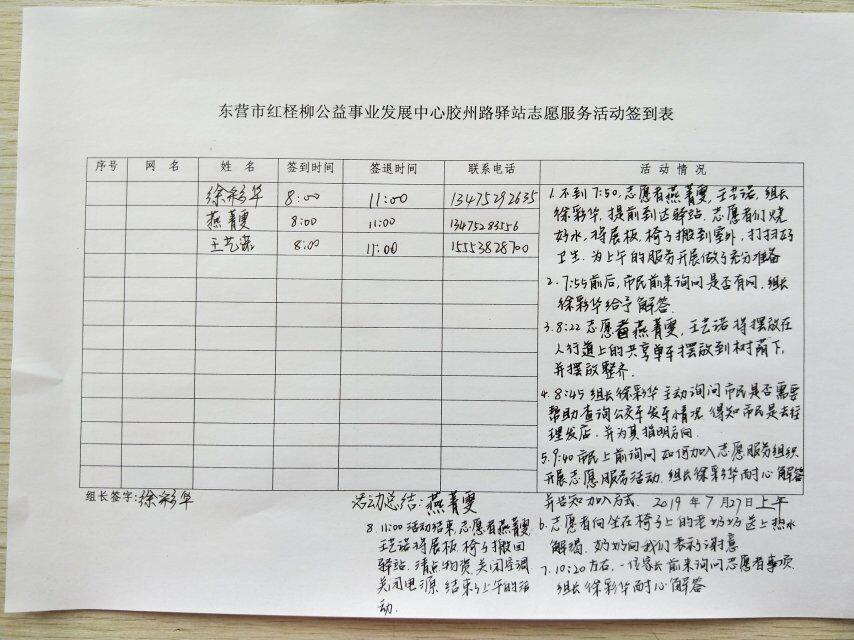 东营市红柽柳公益事业发展中心胶州路驿站志愿服务活动签到表
序号 网 名 姓 名 签到时间 签退时间 联系电话 活 动 情 况
徐彩华 8:00 11:00 13475292635
燕菁雯 8:00 11:00 13475283556
王艺诺 8:00 11:00 15553828700
1.不到7:50,志愿者燕菁雯,王艺诺,组长
徐彩华,提前到达驿站,志愿者们烧
好水,将展板,椅子搬到室外,打扫
卫生.为上午的服务开展做了充分准备
2.7:55前后,市民前来询问是否有网.组长
徐彩华给予解答.
3.8:22志愿者燕菁雯,王艺诺将摆放在
人行道上的共享单车摆放到树荫下,
并摆放整齐.
4.8:45组长徐彩华主动询问市民是否需要
帮助查询公交车发车情况.得知市民是去经
理发店.并为其指明方向.
5.9:40市民上前询问如何加入志愿服务组织
开展志愿服务活动.组长徐彩华耐心解答
并告知加入方式. 2019年7月27日上午
6.志愿者向坐在椅子上的老奶奶送上热水
解渴.奶奶向我们表示谢意
7.10:20左右,一位家长前来询问志愿者事项
组长徐彩华耐心解答
组长签字:徐彩华 活动总结:燕菁雯
8.11:00活动结束,志愿者燕菁雯
王艺诺将展板,椅子搬回
驿站.清点物资.关闭空调
关闭电源.结束了上午的活
动.